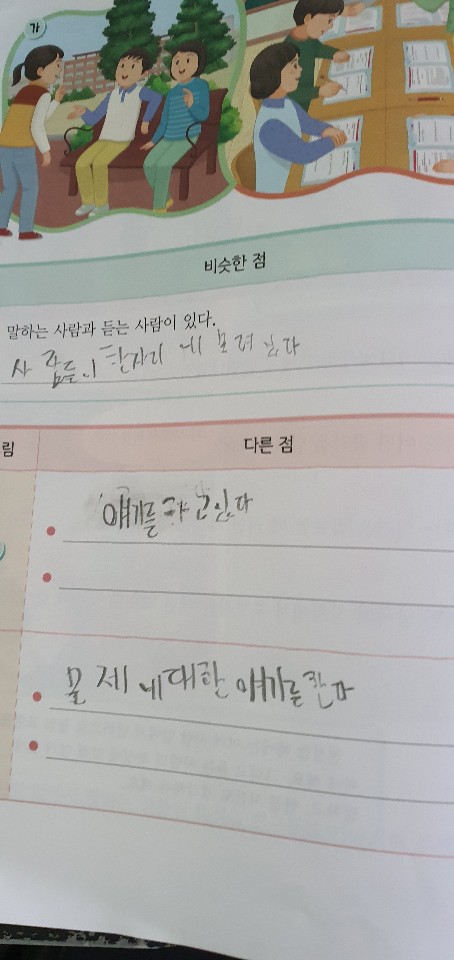 가
비슷한 점
말하는 사람과 듣는 사람이 있다.
사람들이 한자리 에 모여 있다
림
다른 점
얘기를 하고있다
물제 에대한 얘기를 한다